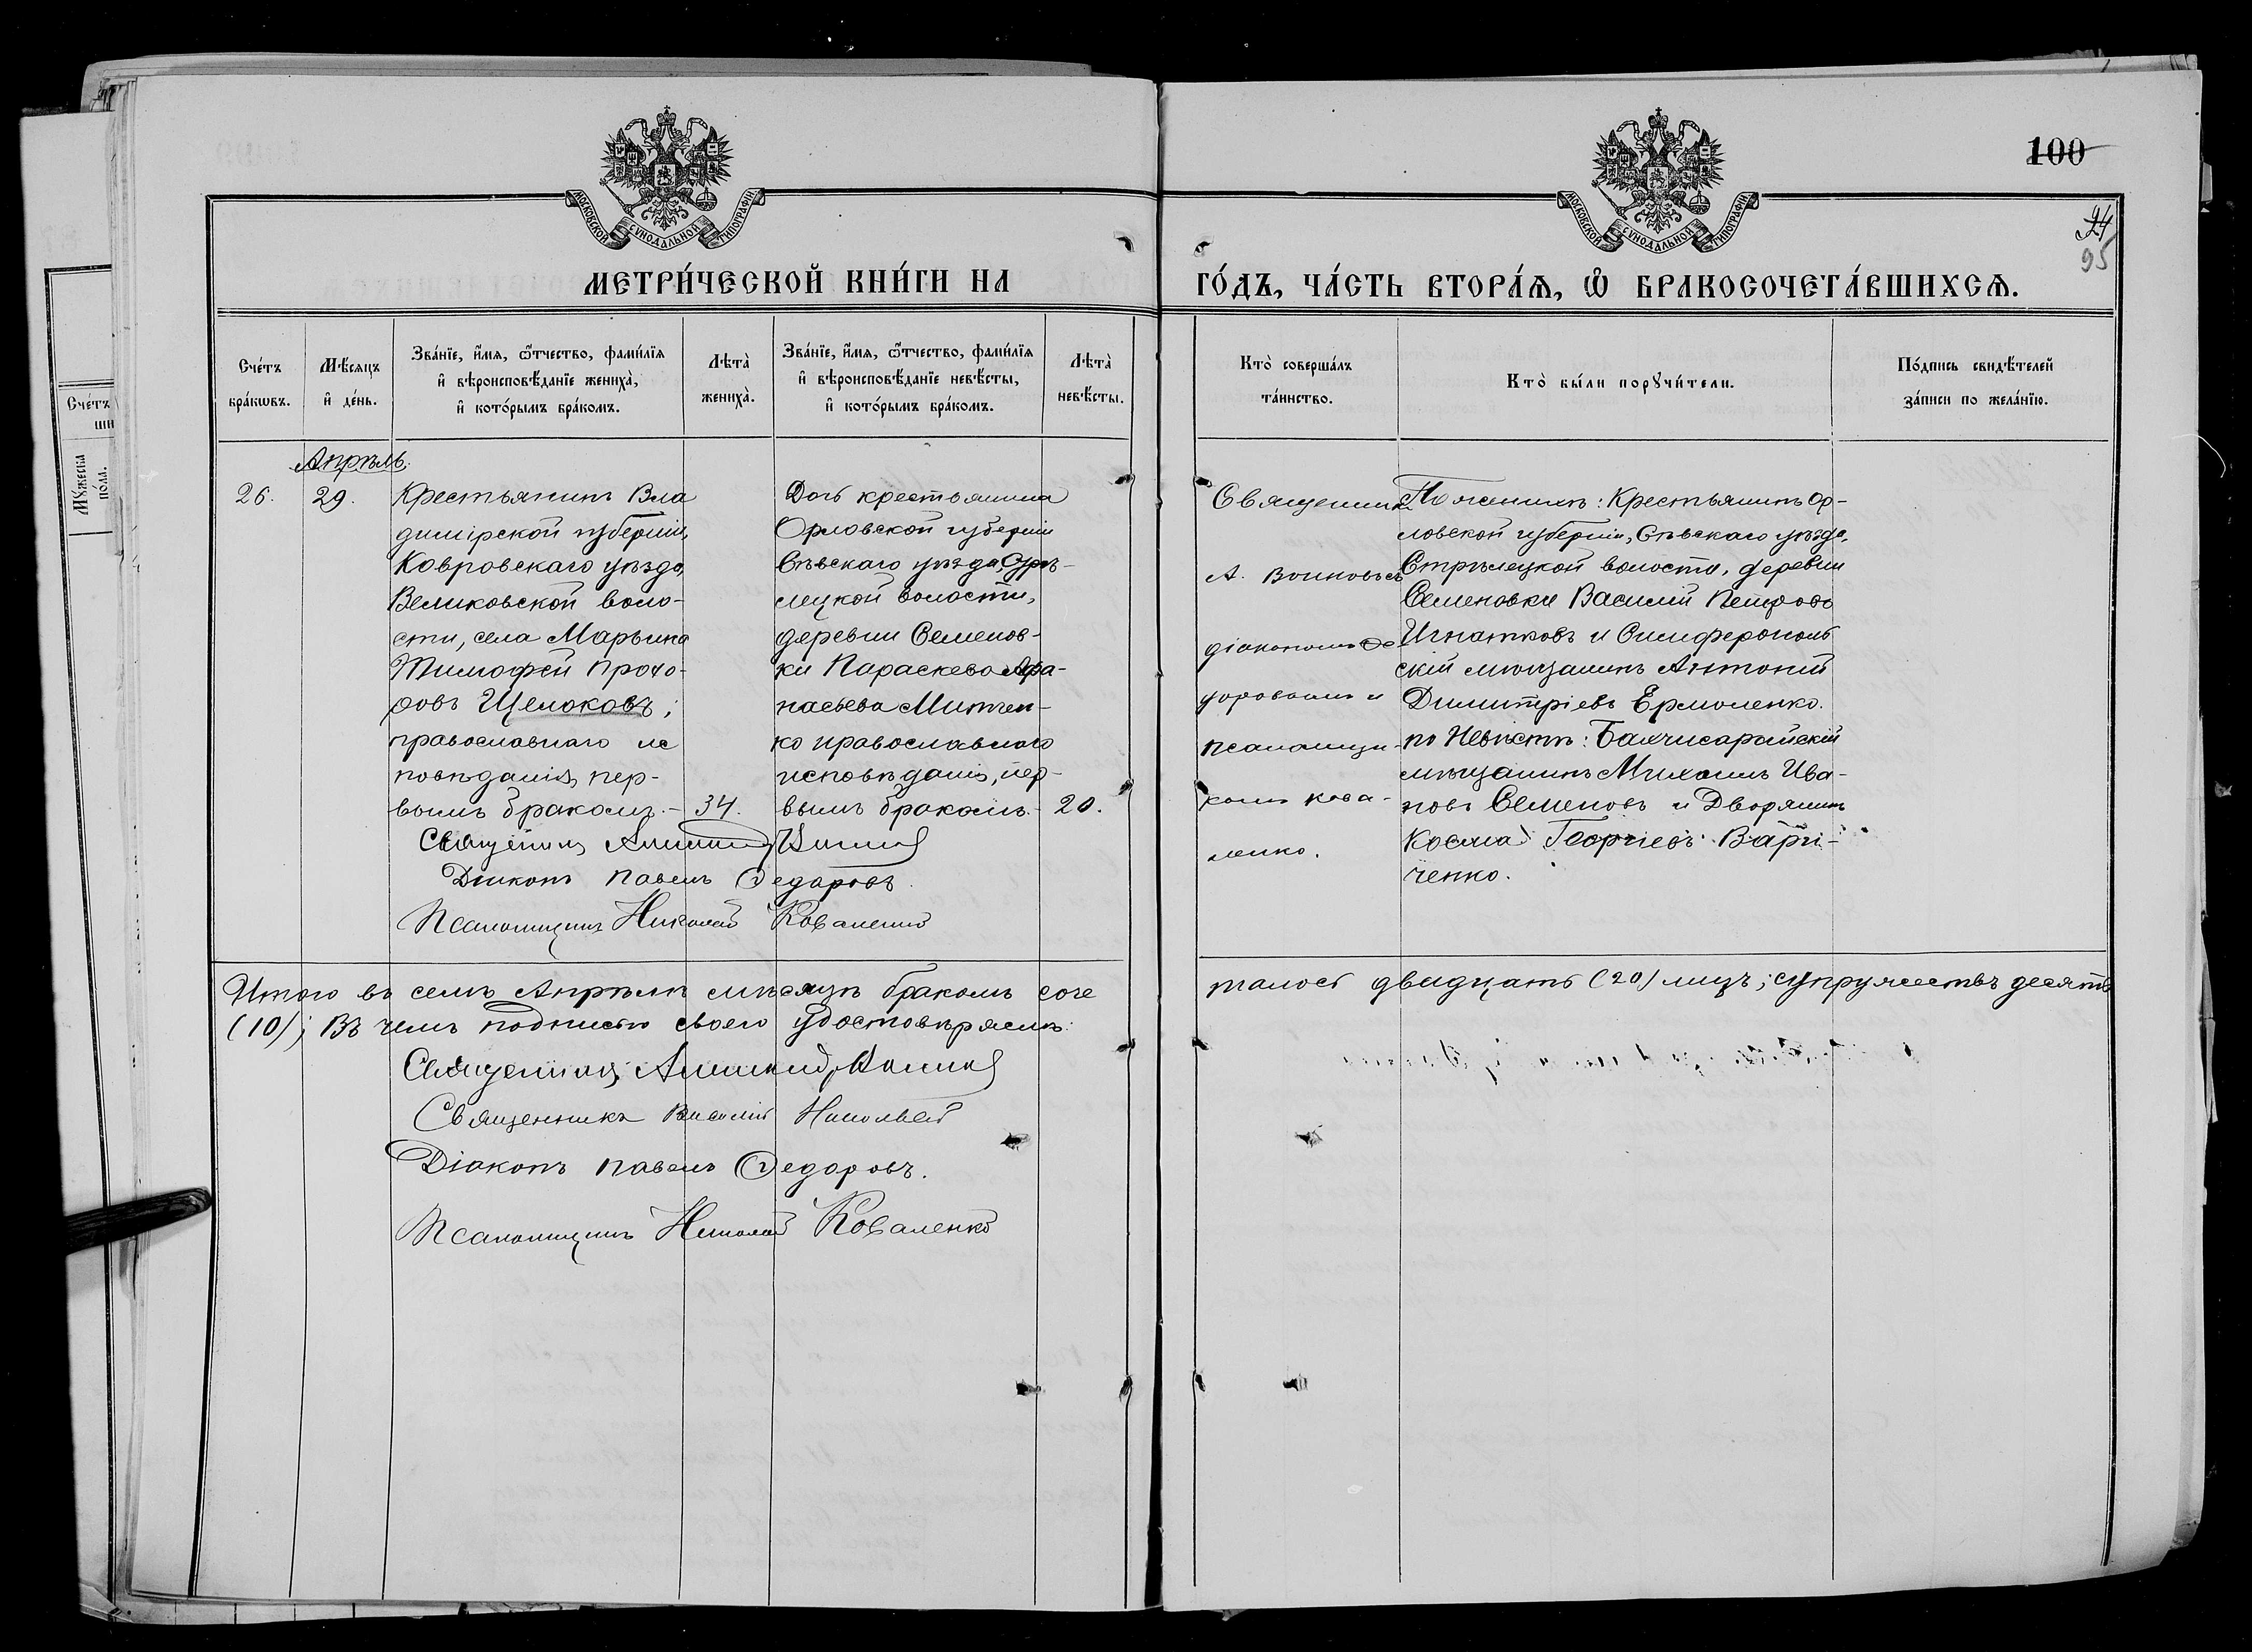 100
24
95
МОСКОВСКОЙ СѴНОДАЛЬНОЙ ТИПОГРАФІИ
МОСКОВСКОЙ СѴНОДАЛЬНОЙ ТИПОГРАФІИ
МЕТРИ́ЧЕСКОЙ КНИ́ГИ НА
ГО́ДЪ, ЧА́СТЬ ВТОРА́Ѧ, Ѽ БРАКОСОЧЕТА́ВШИХСѦ.
Сче́тъ
бра́кωвъ.
Мѣ́сяцъ
и҆ де́нь.
Зва́нїе, и҆́мѧ, ѻ҆́тчество, фами́лїѧ
и҆ вѣроисповѣ́данїе жениха̀,
и҆ кото́рымъ бра́комъ.
Лѣта̀
жениха̀.
Зва́нїе, и҆́мѧ, ѻ҆́тчество, фами́лїѧ
и҆ вѣроисповѣ́данїе невѣ́сты,
и҆ кото́рымъ бра́комъ.
Лѣта̀
невѣ́сты.
Кто̀ соверша́лъ
та́инство.
Кто̀ бы́ли порꙋчи́тели.
По́дпись свидѣ́телей
за́писи по жела́нїю.
Сче́тъ
Мꙋ́жеска
по́ла.
Апрѣль.
26.
29.
Крестьянинъ Вла
димірской губерніи,
Ковровскаго уѣзда,
Великовской воло-
сти, села Марьина
Тимофей Прохо-
ровъ Щелоковъ;
православнаго ис
повѣданія, пер-
вымъ бракомъ. -
34.
Дочь крестьянина
Орловской губерніи
Сѣвскаго уѣзда, Стрѣ-
лецкой волости,
деревни Семенов-
ки Параскева Афа-
насьева Митчен-
ко православнаго
исповѣданія, пер-
вымъ бракомъ. -
20.
Священникъ
А. Воиновъ съ
діакономъ Ѳе
доровымъ и
псаломщи-
комъ Кова-
ленко.
По женихѣ: Крестьянинъ Ор-
ловской губерніи, Сѣвскаго уѣзда,
Стрѣлецкой волости, деревни
Семеновки Василій Петровъ
Игнатковъ и Симферополь
скій мѣщанинъ Антоній
Димитріевъ Ермоленко.
по Невѣстѣ: Бахчисарайскій
мѣщанинъ Михаилъ Ива-
новъ Семеновъ и Дворянинъ
Косма Георгіевъ Вари-
ченко.
Священникъ
Діаконъ Павелъ Ѳедоровъ.
Псаломщикъ Николай Коваленко
Итого въ семъ Апрѣлѣ мѣсяцѣ бракомъ соче
талось двадцать (20) лицъ; супружествъ десять
(10); Въ чемъ подписью своею удостовѣряемъ:
Священникъ Александръ
Священникъ Василій
Діаконъ Павелъ Ѳедоровъ.
Псаломщикъ Николай Коваленко